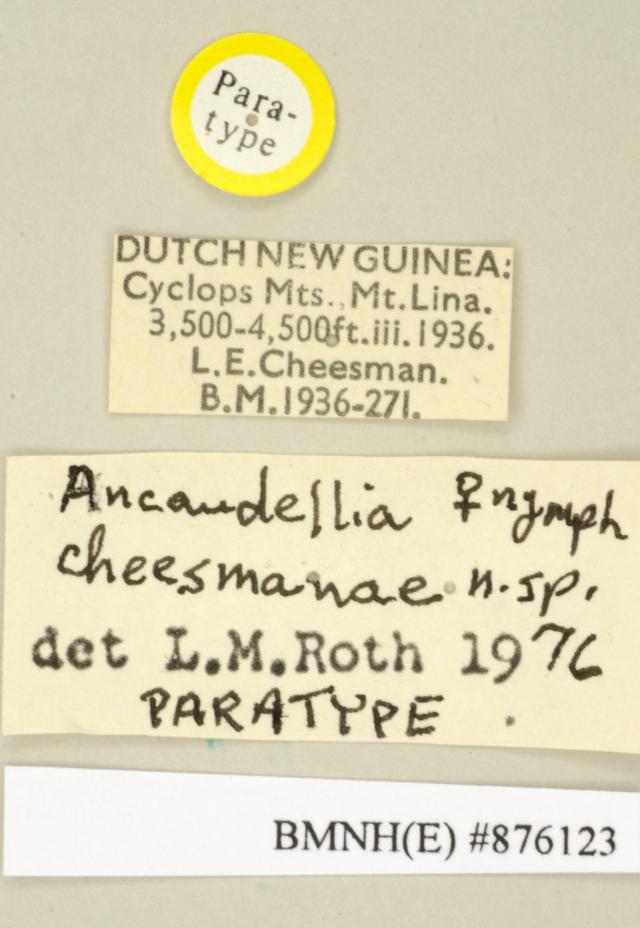 Para-
type
DUTCH NEW GUINEA:
Cyclops Mts., Mt.Lina.
3,500-4,500ft.iii.1936.
L.E.Cheesman.
B.M.1936-271.
Ancaudellia ♀ nymph
cheesmanae n.sp.
det L.M.Roth 1976
PARATYPE
BMNH(E) #876123